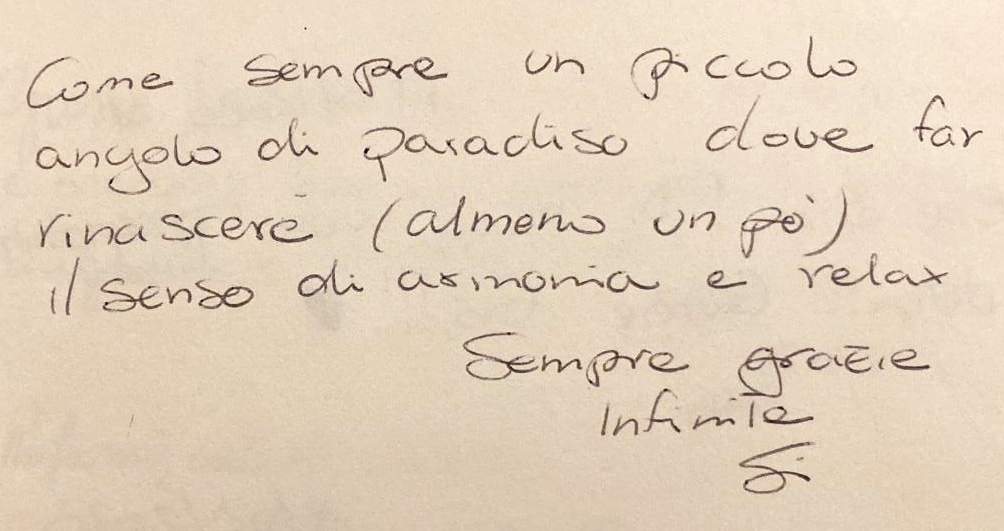 Come sempre un piccolo
angolo di paradiso dove far
rinascere (almeno un pò)
il senso di armonia e relax
Sempre grazie
Infinite
Si